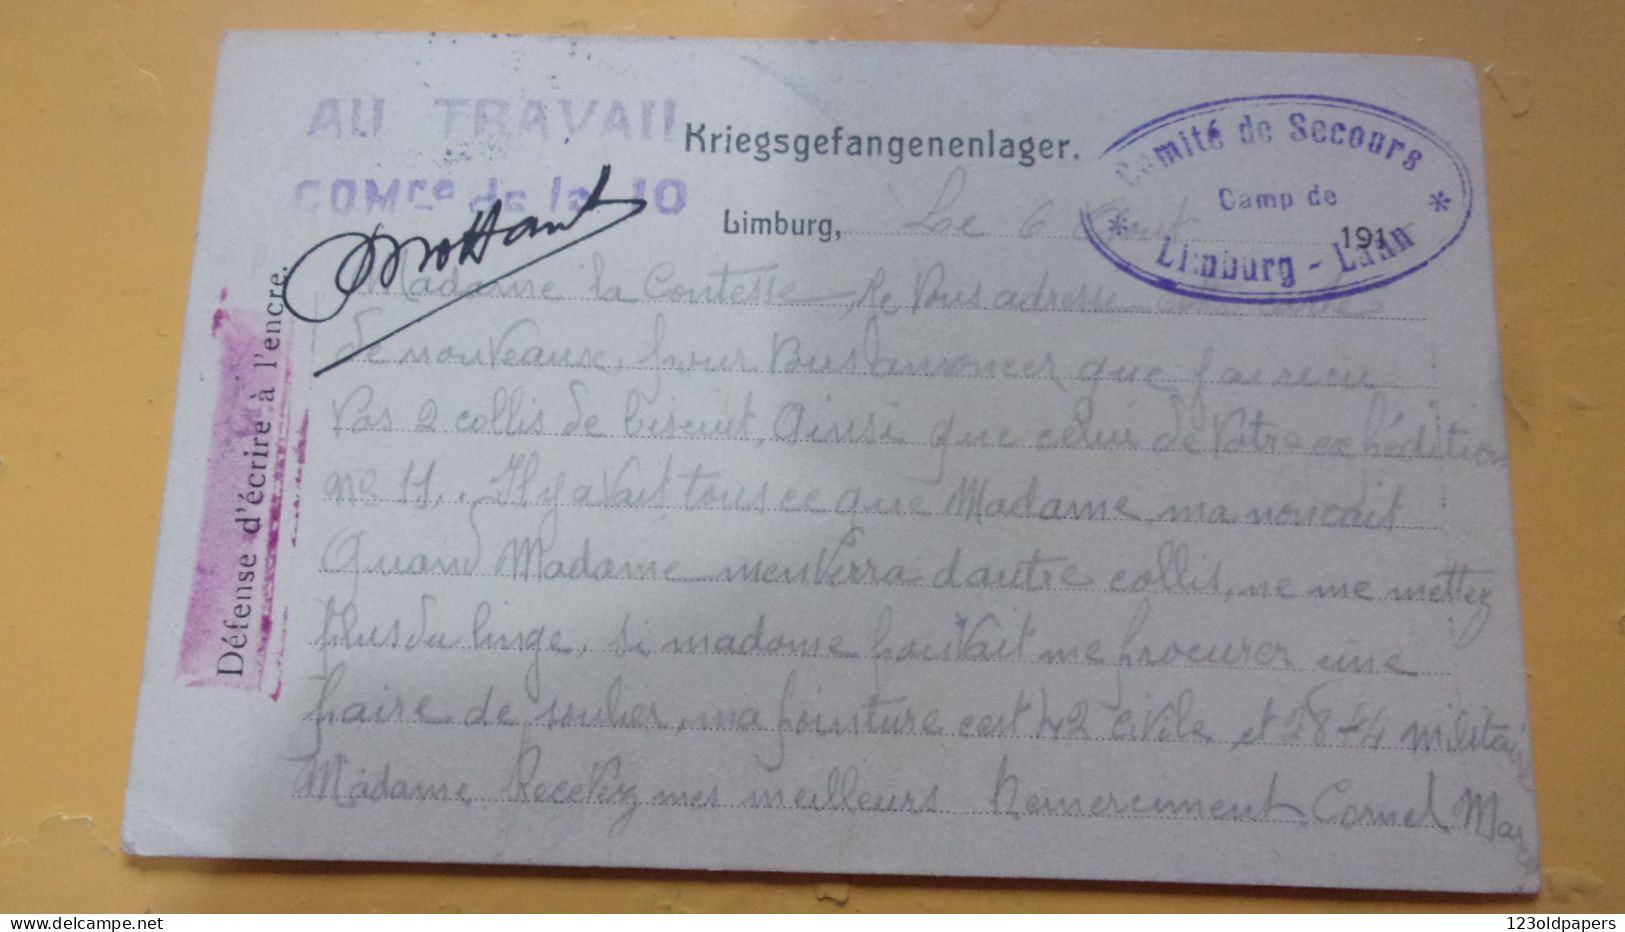 AU TRAVAIL
COMrce de la 10
Kriegsgefangenenlager.
Comité de Secours
Camp de
Limburg - Lahn
Limburg, Le 6 Aout 191
Défense d'écrire à l'encre.
Madame la Contesse, Je Vous adresse cette carte
de nouveaux, pour Vous annoncer que j'ai recu
Vos 2 collis de biscuit, Ainsi que celui de Votre expédition
No 11. Il y avait tous ce que Madame, ma noncait
Quand Madame menverra d'autre collis, ne me mettez
plus du linge, si madame pouvait me procurer une
paire de soulier, ma pointure c'est 42 civile, et 28+4 militaire
Madame Recevez mes meilleurs Remerciment Cornet Marc
123oldpapers